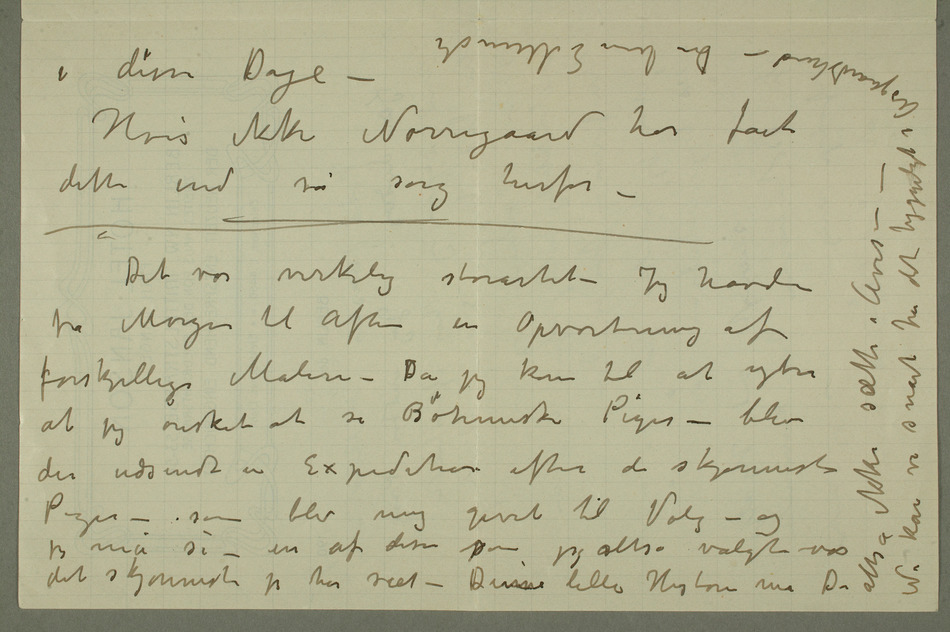 i disse Dage –
Hvis ikke Nørregaard har fået
dette ind så sørg herfor –
Det var virkelig storartet – Jeg havde
fra Morgen til Aften en Opvartning af
forskjellige Malere – Da jeg kom til at ytre
at jeg ønsket at se Bøhmiske Piger – blev
der udsendt en Expedition efter de skjønneste
Piger – som blev mig givet til Valg – og
jeg må si – en af disse som jeg altså valgte var
det skjønneste jeg har seet – Denne lille Historie må Du
altså ikke sætte i Avis – –
Vi kan vi snart ha det hyggeligt i
Åsgaardstrand – Din